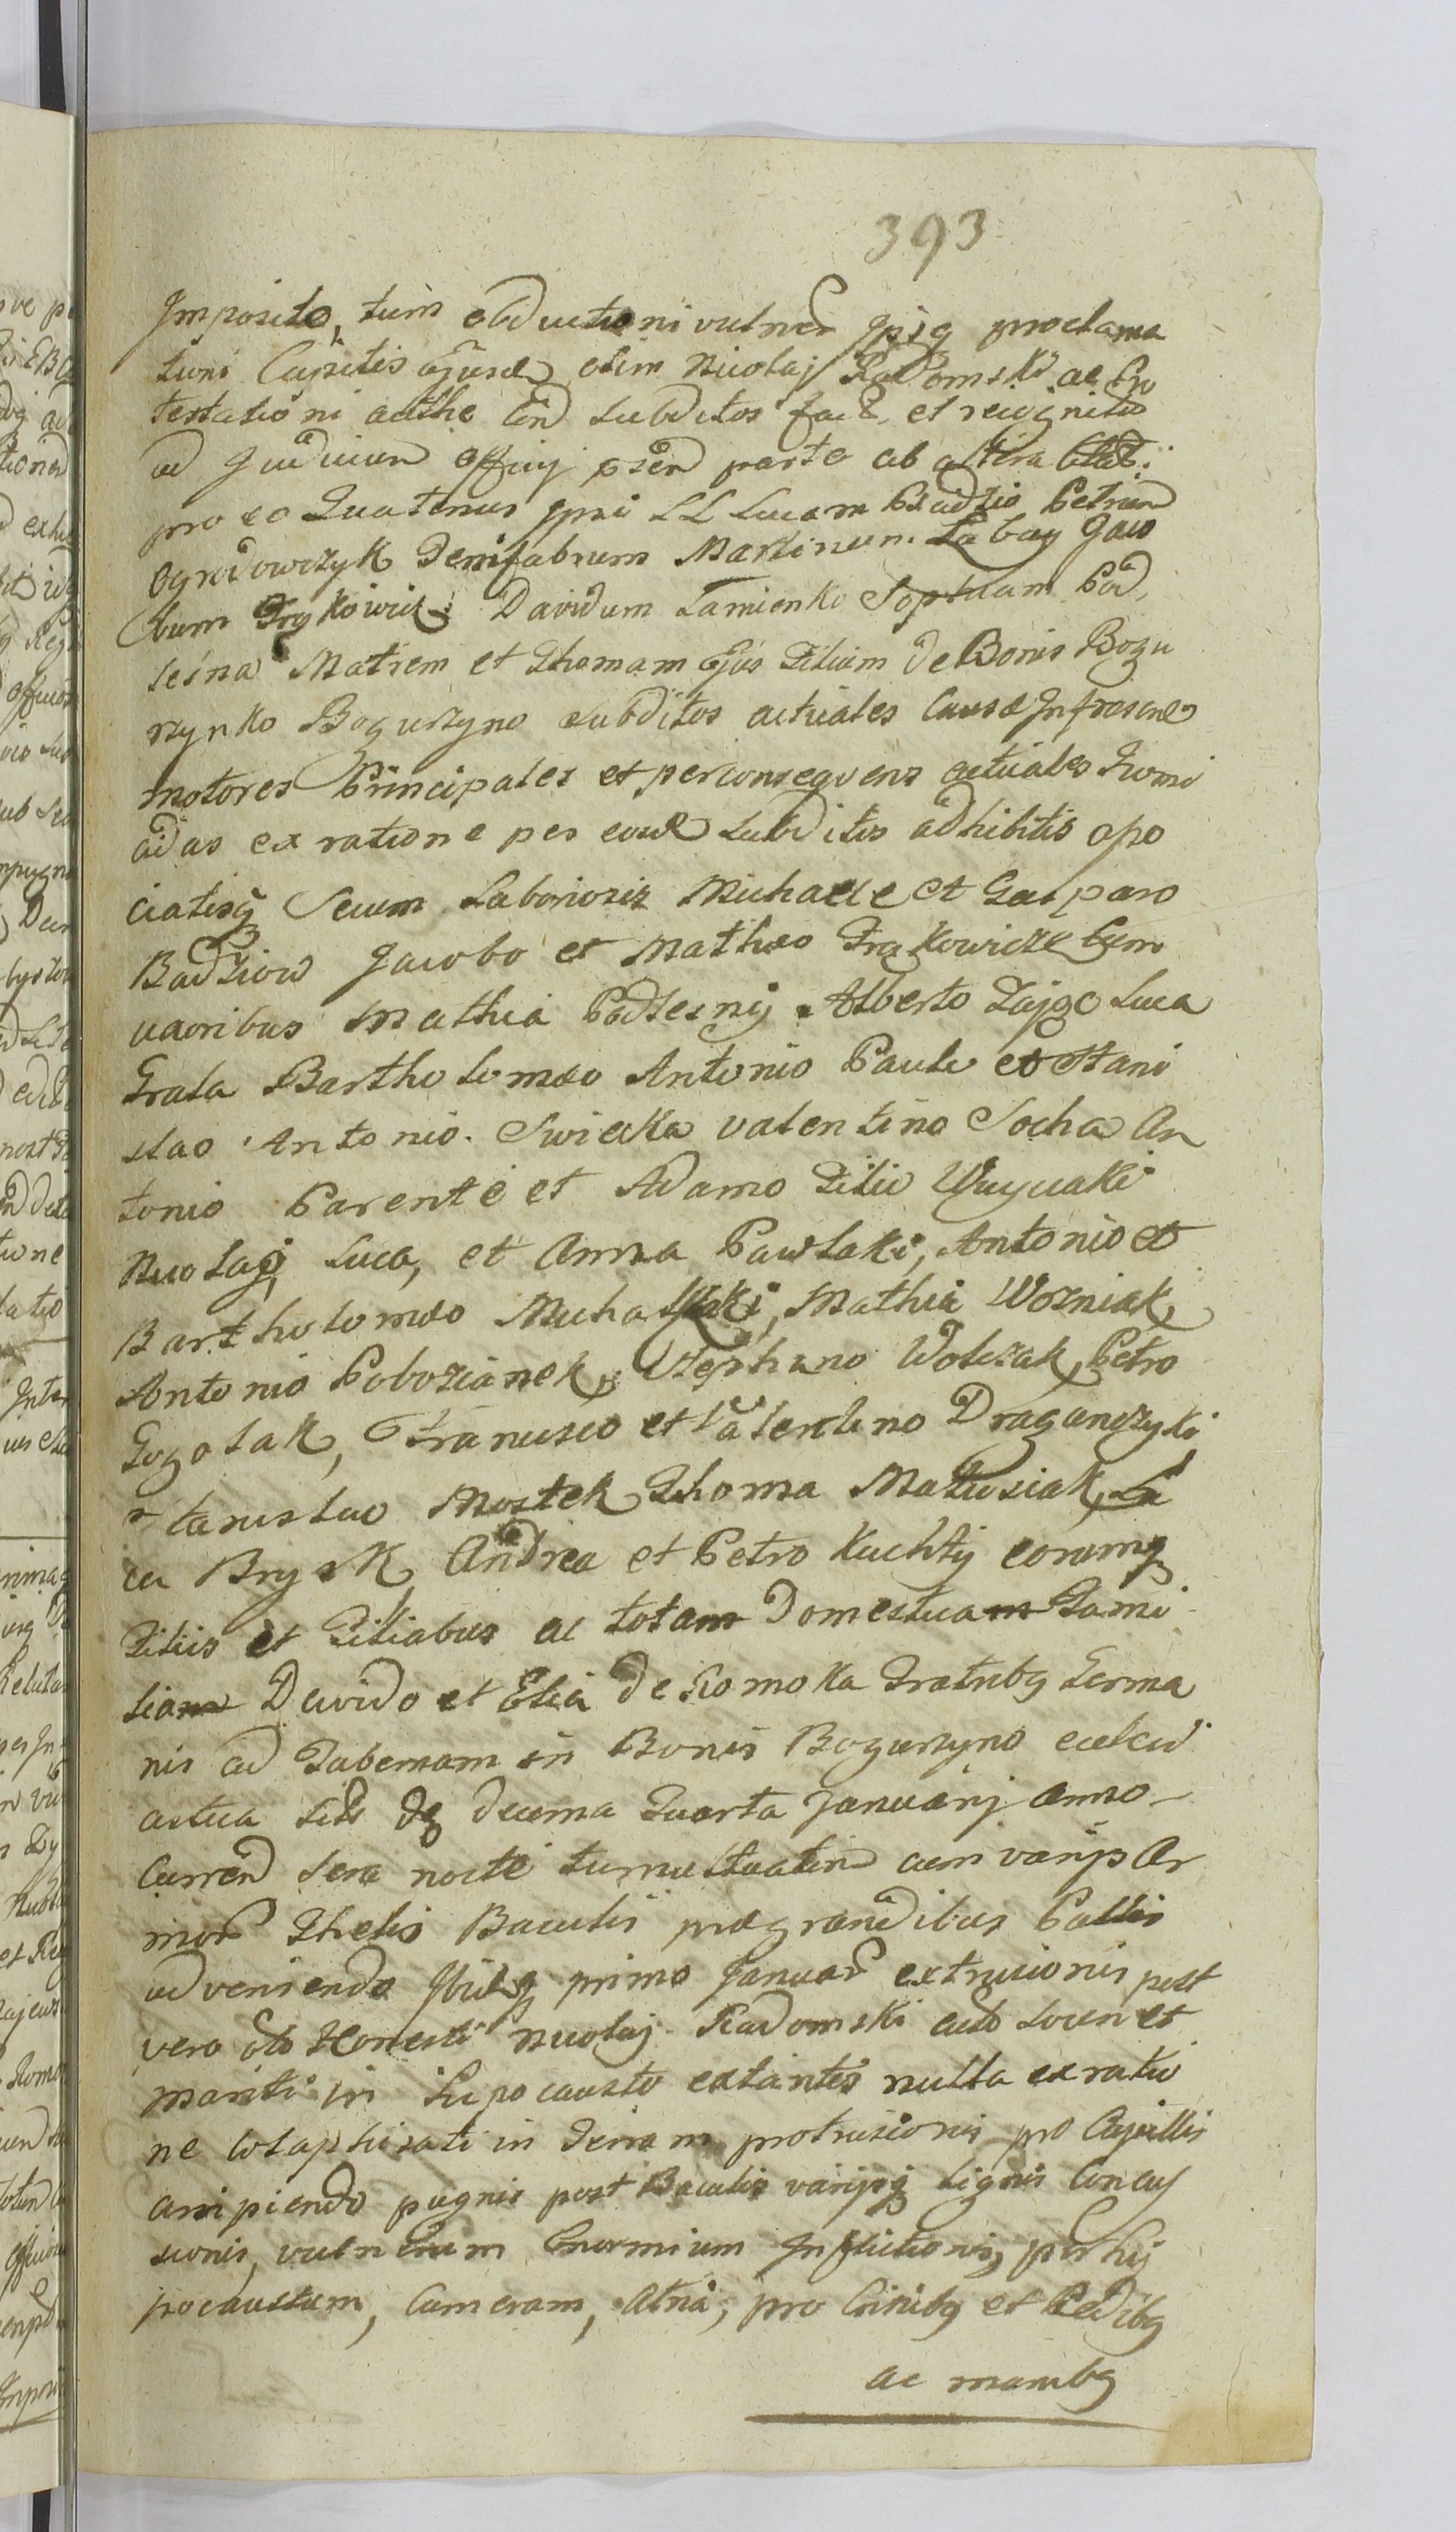 393
Imposito, tum obductioni vulner ipsiq proclama
tioni Capitis ejusd olim Nicolaj Radomski ac Pro
testationi acthe con Subditos fact et recognitis
ad Judicium Officij psen parte ab altera Citat:
pro eo Quatenus ipsi LL Lucam Bzadzio Petrum
Ogrodowczyk Semifabrum Martinum Labay Jaco
bum Frąkowicz Davidum Lamienko Sophiam Pod,
lesna Matrem et Thomam Ejus Filium de Bonis Bogu
rzynko Bogurzyno subditos actuales Causæ Infrascrip
motores Principales et perconsequens actuales Homi
cidas ex ratione per eosd Subditos adhibitis aso
ciatisq Secum Laboriosis Michaele et Gasparo
Badziow Jacobo et Matheo Frąkowicze Cum
uxoribus Mathia Podlesny Alberto Zająo Luca
Grala Bartholomæo Antonio Paulo et Stani
slao Antonio Swiecka Valentino Socha An
tonio Parente et Adamo Filio Wuycaki
Nicolaj, Luca, et Anna Pawlaki, Antonio et
Bartholomæo Michalski, Mathia Wozniak
Antonio Pobozianek, Stephano Wolczak, Petro
Gozolak, Francisco et Valentino Draganczyki
Stanislao Mostek Thoma Matusiak, Lu
ca Brysk Andrea et Petro Kuchty eorumq
Filiis et Filiabus ac totam Domesticam Fami
liam Davido et Elia de Somoka Fratribq Germa
nis ad Tabernam in Bonis Bogurzyno
astua die decima Quarta Januarij Anno
Curren sera nocte tumultuatim cum varijs Ar
mor Thelis Baculis prægrandibus Pallis
adveniendo Ibidq primo Januar extrucionis post
vero olo Honesti Nicolaj Radomski eust locum et
mariti in Hipocausto extantis nulla ex ratio
ne Colaphisati in Terram protrusionis pro Capillis
arripiendo pugnis post Baculis varijsq Lignis Concus
sionis, vulnerum Enormium Inflictionis, per hij
pocaustum, Cameram, Atria, pro Crinibq et Pedibq
ac manibq